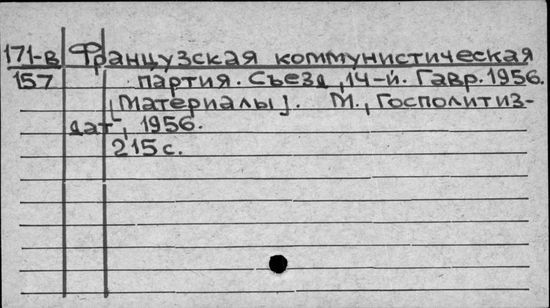 171-в Французская коммунистическая
157 партия. Съезд, 14-й. Гавр. 1956.
[Материалы]. М., Госполитиз-
дат, 1956.
215 с.